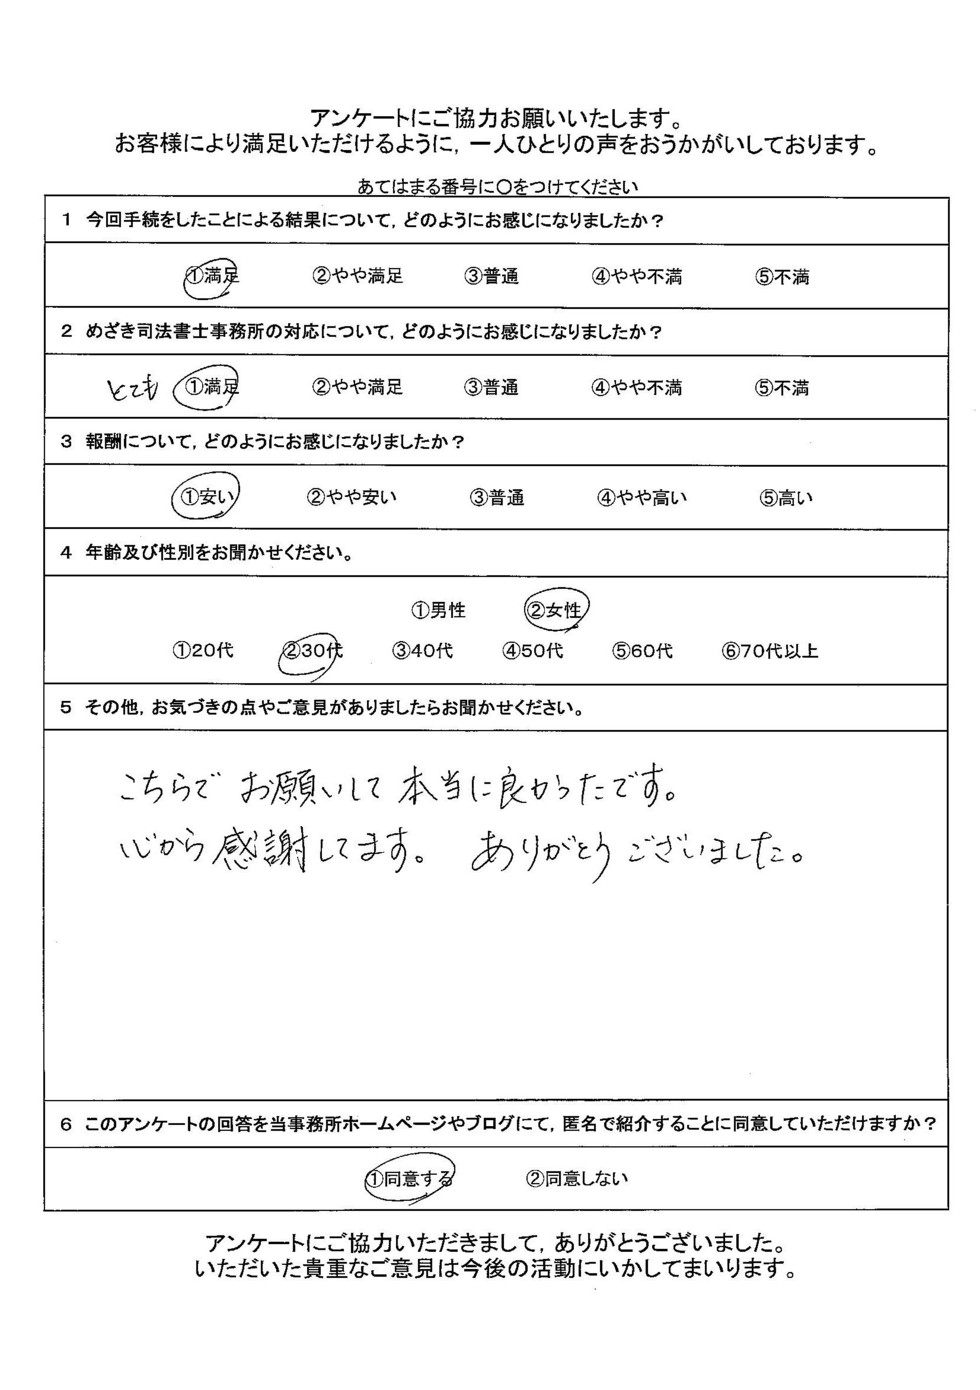 アンケートにご協力お願いいたします。
お客様により満足いただけるように，一人ひとりの声をおうかがいしております。
あてはまる番号に〇をつけてください
1 今回手続をしたことによる結果について，どのようにお感じになりましたか？
①満足 ②やや満足 ③普通 ④やや不満 ⑤不満
2 めざき司法書士事務所の対応について，どのようにお感じになりましたか？
とても ①満足 ②やや満足 ③普通 ④やや不満 ⑤不満
3 報酬について，どのようにお感じになりましたか？
①安い ②やや安い ③普通 ④やや高い ⑤高い
4 年齢及び性別をお聞かせください。
①男性 ②女性
①20代 ②30代 ③40代 ④50代 ⑤60代 ⑥70代以上
5 その他，お気づきの点やご意見がありましたらお聞かせください。
こちらで お願いして 本当に良かったです。
心から感謝してます。 ありがとうございました。
6 このアンケートの回答を当事務所ホームページやブログにて，匿名で紹介することに同意していただけますか？
①同意する ②同意しない
アンケートにご協力いただきまして，ありがとうございました。
いただいた貴重なご意見は今後の活動にいかしてまいります。